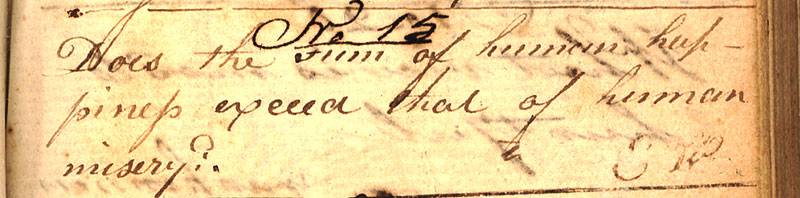 No 15
Does the sum of human hap-
piness exceed that of human
misery?.